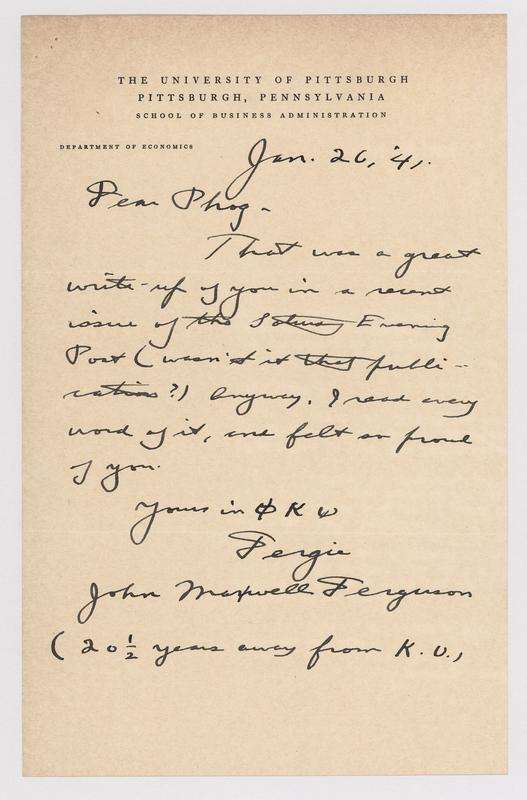 THE UNIVERSITY OF PITTSBURGH
PITTSBURGH, PENNSYLVANIA
SCHOOL OF BUSINESS ADMINISTRATION
DEPARTMENT OF ECONOMICS
Jan. 26, '41.
Dear Phog-
That was a great
write-up of you in a recent
issue of the Saturday Evening
Post (wasn't it that publi-
cation?) Anyway, I read every
word of it, and felt so proud
of you.
Yours in Φ K Ψ
Fergie
John Maxwell Ferguson
(20 1/2 years away from K.U.)